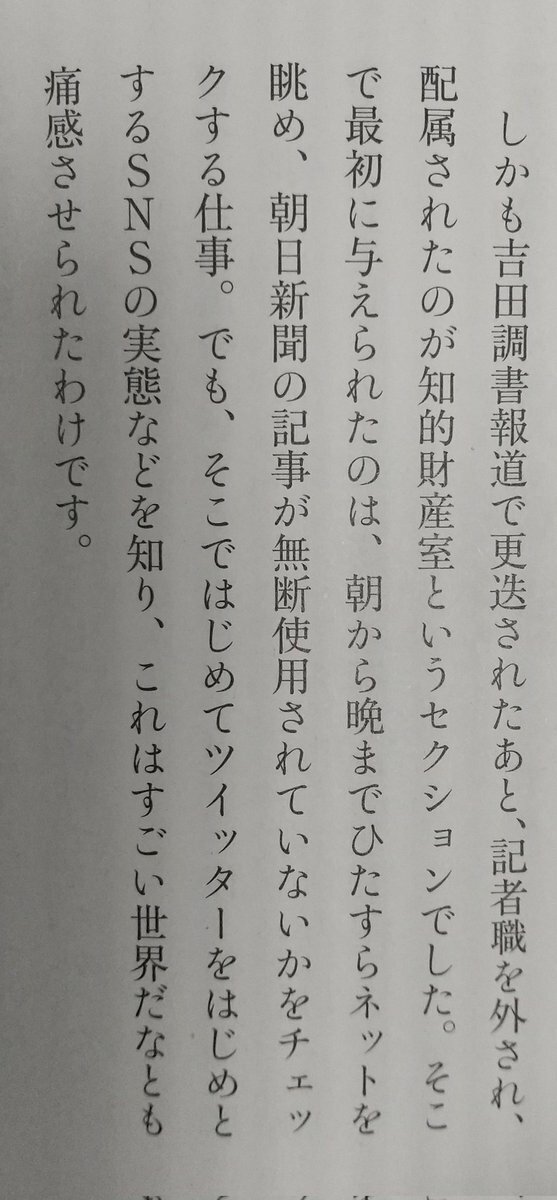 しかも吉田調書報道で更迭されたあと、記者職を外され、
配属されたのが知的財産室というセクションでした。そこ
で最初に与えられたのは、朝から晩までひたすらネットを
眺め、朝日新聞の記事が無断使用されていないかをチェッ
クする仕事。でも、そこではじめてツイッターをはじめと
するSNSの実態などを知り、これはすごい世界だなとも
痛感させられたわけです。